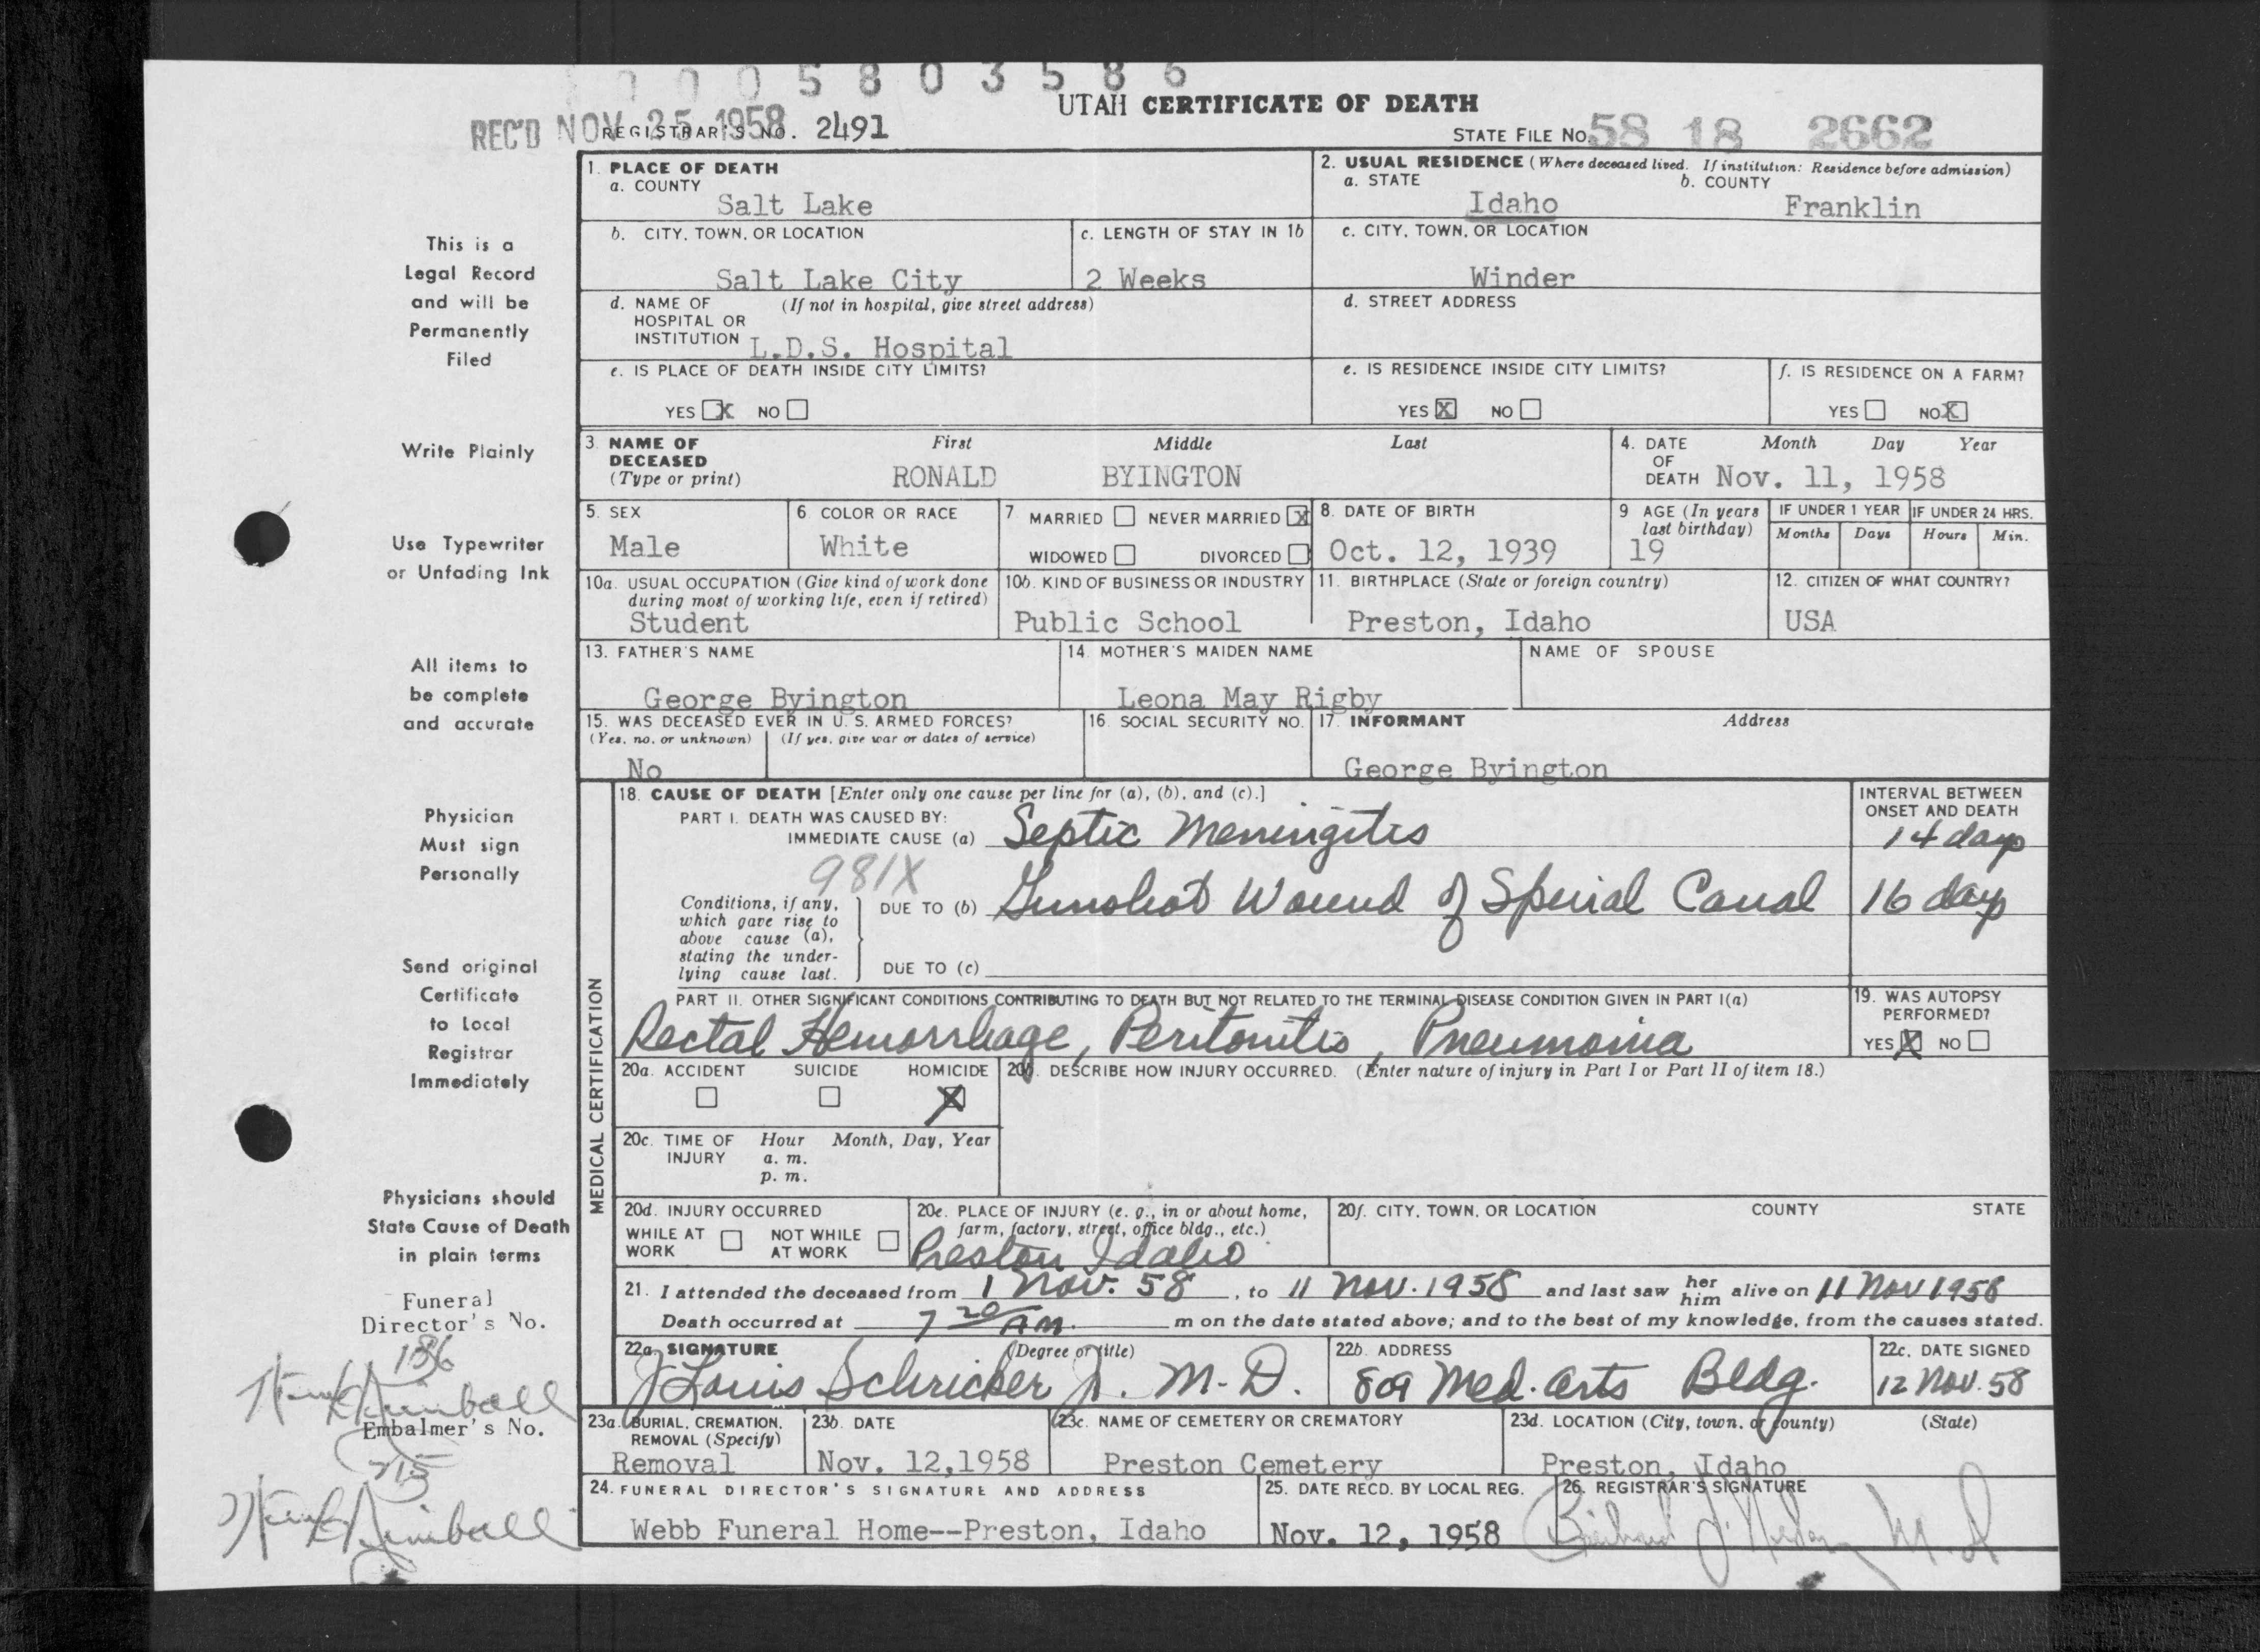 0 0 0 5 8 0 3 5 8 6
UTAH CERTIFICATE OF DEATH
REC'D NOV 25 1958 REGISTRAR'S NO. 2491
STATE FILE NO. 58 18 2662
This is a
Legal Record
and will be
Permanently
Filed
Write Plainly
Use Typewriter
or Unfading Ink
All items to
be complete
and accurate
Physician
Must sign
Personally
Send original
Certificate
to Local
Registrar
Immediately
Physicians should
State Cause of Death
in plain terms
Funeral
Director's No.
186
Kimball
Embalmer's No.
215
Kimball
1. PLACE OF DEATH
a. COUNTY
Salt Lake
2. USUAL RESIDENCE (Where deceased lived. If institution: Residence before admission)
a. STATE b. COUNTY
Idaho Franklin
b. CITY, TOWN, OR LOCATION
Salt Lake City
c. LENGTH OF STAY IN 1b
2 Weeks
c. CITY, TOWN, OR LOCATION
Winder
d. NAME OF (If not in hospital, give street address)
HOSPITAL OR
INSTITUTION L.D.S. Hospital
d. STREET ADDRESS
e. IS PLACE OF DEATH INSIDE CITY LIMITS?
YES X NO
e. IS RESIDENCE INSIDE CITY LIMITS?
YES X NO
f. IS RESIDENCE ON A FARM?
YES NO X
3. NAME OF First Middle Last
DECEASED
(Type or print) RONALD BYINGTON
4. DATE Month Day Year
OF
DEATH Nov. 11, 1958
5. SEX
Male
6. COLOR OR RACE
White
7. MARRIED NEVER MARRIED X
WIDOWED DIVORCED
8. DATE OF BIRTH
Oct. 12, 1939
9. AGE (In years
last birthday)
19
IF UNDER 1 YEAR IF UNDER 24 HRS.
Months Days Hours Min.
10a. USUAL OCCUPATION (Give kind of work done
during most of working life, even if retired)
Student
10b. KIND OF BUSINESS OR INDUSTRY
Public School
11. BIRTHPLACE (State or foreign country)
Preston, Idaho
12. CITIZEN OF WHAT COUNTRY?
USA
13. FATHER'S NAME
George Byington
14. MOTHER'S MAIDEN NAME
Leona May Rigby
NAME OF SPOUSE
15. WAS DECEASED EVER IN U. S. ARMED FORCES?
(Yes, no, or unknown) (If yes, give war or dates of service)
No
16. SOCIAL SECURITY NO.
17. INFORMANT Address
George Byington
MEDICAL CERTIFICATION
18. CAUSE OF DEATH [Enter only one cause per line for (a), (b), and (c).]
PART I. DEATH WAS CAUSED BY:
IMMEDIATE CAUSE (a) Septic Meningitis
INTERVAL BETWEEN
ONSET AND DEATH
14 days
981X
Conditions, if any,
which gave rise to
above cause (a),
stating the under-
lying cause last.
DUE TO (b) Gunshot Wound of Spinal Canal 16 days
DUE TO (c)
PART II. OTHER SIGNIFICANT CONDITIONS CONTRIBUTING TO DEATH BUT NOT RELATED TO THE TERMINAL DISEASE CONDITION GIVEN IN PART I(a)
Rectal Hemorrhage, Peritonitis, Pneumonia
19. WAS AUTOPSY
PERFORMED?
YES X NO
20a. ACCIDENT SUICIDE HOMICIDE
X
20b. DESCRIBE HOW INJURY OCCURRED. (Enter nature of injury in Part I or Part II of item 18.)
20c. TIME OF Hour Month, Day, Year
INJURY a. m.
p. m.
20d. INJURY OCCURRED
WHILE AT NOT WHILE
WORK AT WORK
20e. PLACE OF INJURY (e. g., in or about home,
farm, factory, street, office bldg., etc.)
Preston Idaho
20f. CITY, TOWN, OR LOCATION COUNTY STATE
21. I attended the deceased from 1 Nov. 58, to 11 Nov. 1958 and last saw her him alive on 11 Nov 1958
Death occurred at 7 20 AM. m on the date stated above; and to the best of my knowledge, from the causes stated.
22a. SIGNATURE (Degree or title)
J Louis Schricker Jr. M.D.
22b. ADDRESS
809 Med. Arts Bldg.
22c. DATE SIGNED
12 Nov. 58
23a. BURIAL, CREMATION,
REMOVAL (Specify)
Removal
23b. DATE
Nov. 12, 1958
23c. NAME OF CEMETERY OR CREMATORY
Preston Cemetery
23d. LOCATION (City, town, or county) (State)
Preston, Idaho
24. FUNERAL DIRECTOR'S SIGNATURE AND ADDRESS
Webb Funeral Home--Preston, Idaho
25. DATE RECD. BY LOCAL REG.
Nov. 12, 1958
26. REGISTRAR'S SIGNATURE
M.D.